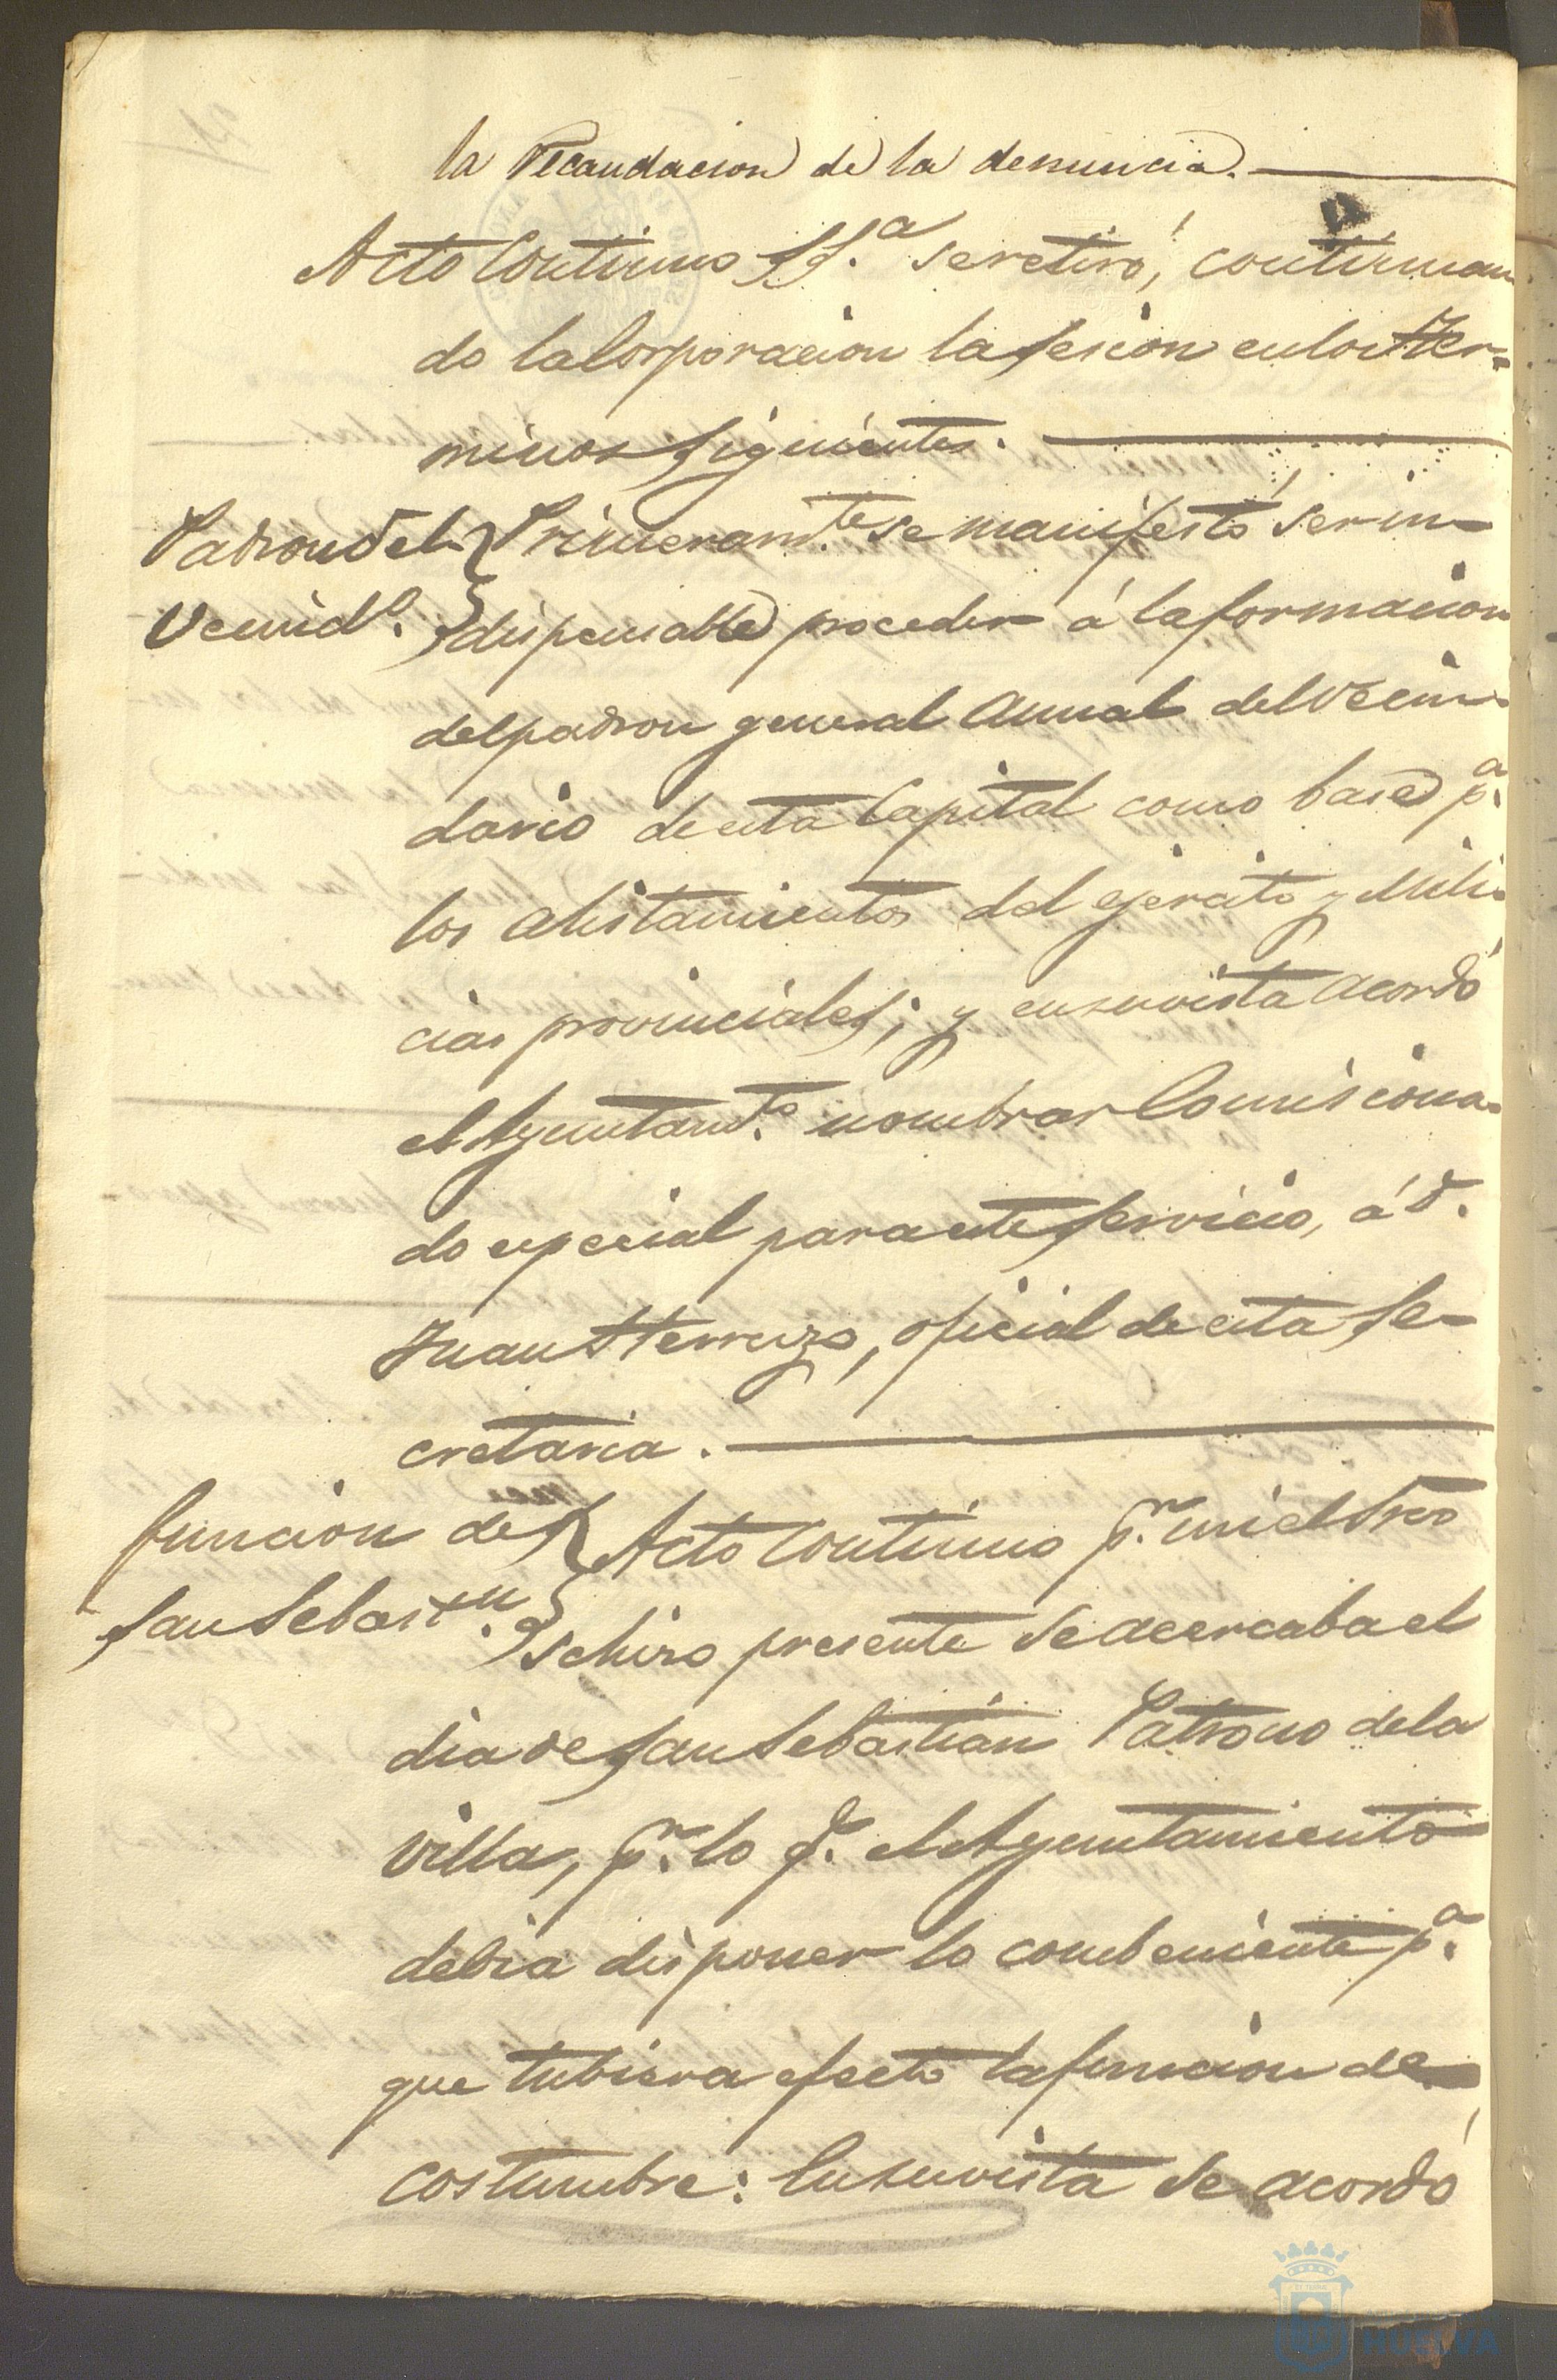 la Recaudacion de la denuncia.
Acto continuo S.S.ª se retiró, continuan
do la Corporacion la sesion en los ter-
minos siguientes.
Padron del Primeram.te se manifestó ser in-
Vecind.o. dispensable proceder á la formacion
del padron general annal del vecin-
dario de esta Capital como base p.a
los alistamientos del ejercito y Mili-
cias provinciales; y en su vista acordó
el Ayuntam.to nombrar Comisiona-
do especial para este servicio, á d.
Juan Herrezo, oficial de esta Se-
cretaria.
funcion de Acto continuo p.r mi el Srio
San Sebast.n. se hizo presente se acercaba el
dia de San Sebastián Patrono de la
Villa, p.r lo q.e el Ayuntamiento
debia disponer lo combeniente p.a
que tubiera efecto la funcion de
costumbre: En su vista se acordó
HUELVA